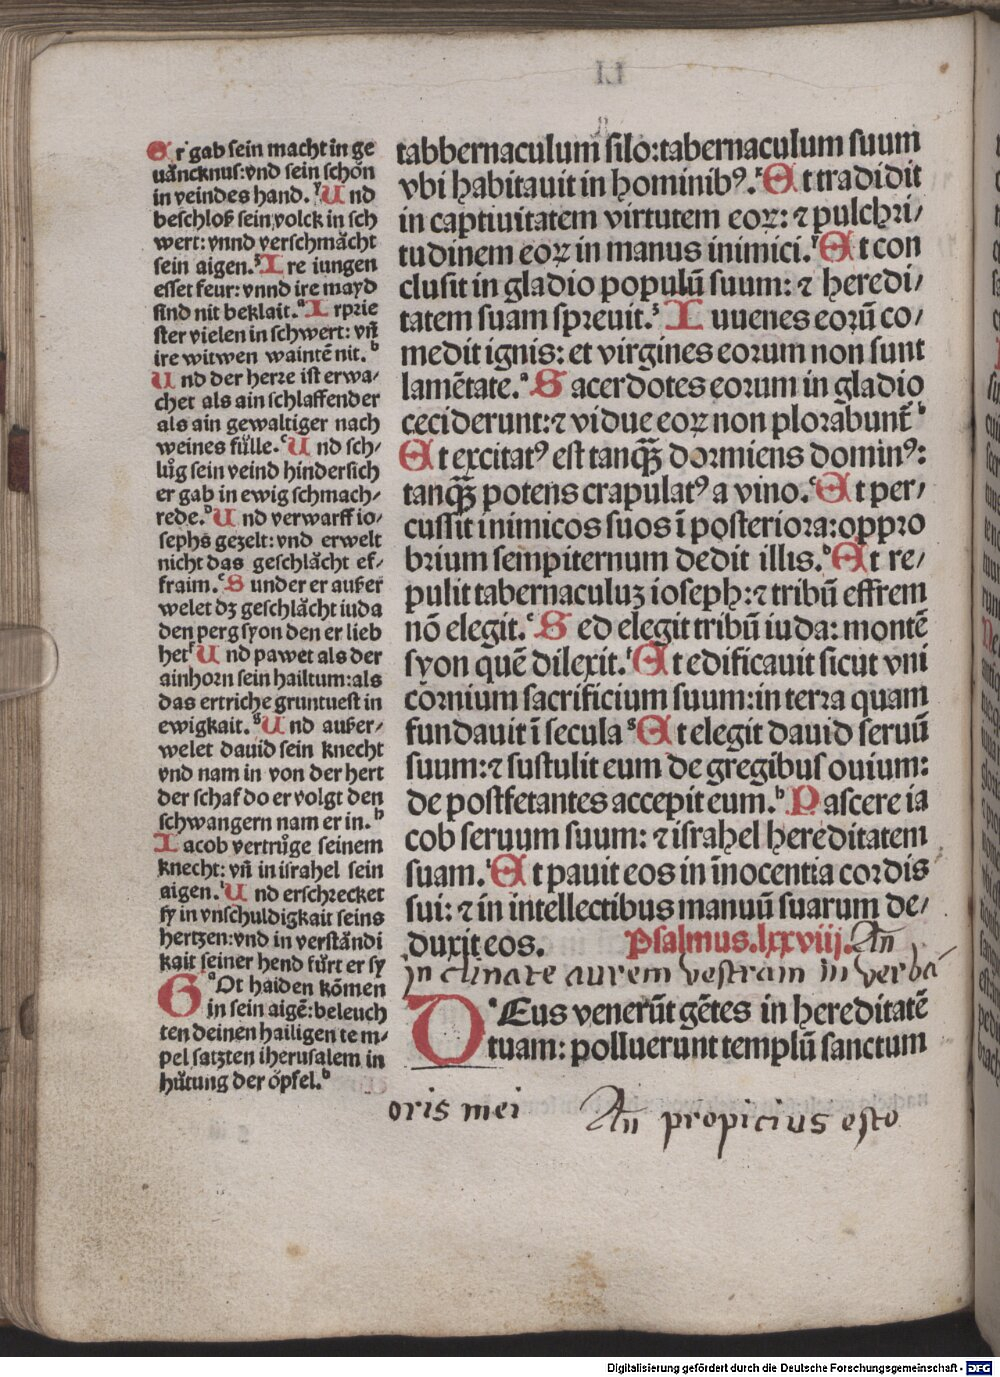 Er gab sein macht in ge
uäncknus: vnd sein schön
in veindes hand.ʳ Und
beschloß sein volck in sch
wert: vnnd verschmächt
sein aigen.ˢ Ire iungen
esset feur: vnnd ire mayd
sind nit beklait.ᵃ Ir prie
ster vielen in schwert: vñ
ire witwen waintē nit.ᵇ
Und der herre ist erwa⸗
chet als ain schlaffender
als ain gewaltiger nach
weines fülle.ᶜ Und sch⸗
lůg sein veind hindersich
er gab in ewig schmach⸗
rede.ᵈ Und verwarff io⸗
sephs gezelt: vnd erwelt
nicht das geschlächt ef⸗
fraim.ᵉ Sunder er außer
welet dz geschlächt iuda
den perg syon den er lieb
hetᶠ Und pawet als der
ainhorn sein hailtum: als
das ertriche gruntuest in
ewigkait.ᵍ Und außer⸗
welet dauid sein knecht
vnd nam in von der hert
der schaf do er volgt den
schwangern nam er in.ʰ
Iacob vertrůge seinem
knecht: vñ in israhel sein
aigen.ⁱ Und erschrecket
sy in vnschuldigkait seins
hertzen: vnd in verständi
kait seiner hend fürt er sy
GOt haiden kömen
in sein aigē: beleuch
ten deinen hailigen tem⸗
pel satzten iherusalem in
hütung der öpfel.ᵇ
tabbernaculum silo: tabernaculum suum
vbi habitauit in hominibꝰ. Et tradidit
in captiuitatem virtutem eoꝝ: ⁊ pulchri⸗
tudinem eoꝝ in manus inimici.ʳ Et con
clusit in gladio populū suum: ⁊ heredi⸗
tatem suam spreuit.ˢ Iuuenes eorū co⸗
medit ignis: et virgines eorum non sunt
lamētate.ᵃ Sacerdotes eorum in gladio
ceciderunt: ⁊ vidue eoꝝ non plorabunt̄ ᵇ
Et excitatꝰ est tanqꝫ dormiens dominꝰ:
tanqꝫ potens crapulatꝰ a vino.ᶜ Et per⸗
cussit inimicos suos ī posteriora: oppro
brium sempiternum dedit illis.ᵈ Et re⸗
pulit tabernaculuꝫ ioseph: ⁊ tribū effrem
nō elegit.ᵉ Sed elegit tribū iuda: montē
syon quē dilexit.ᶠ Et edificauit sicut vni
cornium sacrificium suum: in terra quam
fundauit ī secula ᵍ Et elegit dauid seruū
suum: ⁊ sustulit eum de gregibus ouium:
de postfetantes accepit eum.ʰ Pascere ia
cob seruum suum: ⁊ israhel hereditatem
suam.ⁱ Et pauit eos in īnocentia cordis
sui: ⁊ in intellectibus manuū suarum de⸗
duxit eos. Psalmus.lxxviij. An
Inclinate aurem vestram in verba
DEus venerūt gētes in hereditatē
tuam: polluerunt templū sanctum
oris mei An propicius esto
Digitalisierung gefördert durch die Deutsche Forschungsgemeinschaft - DFG